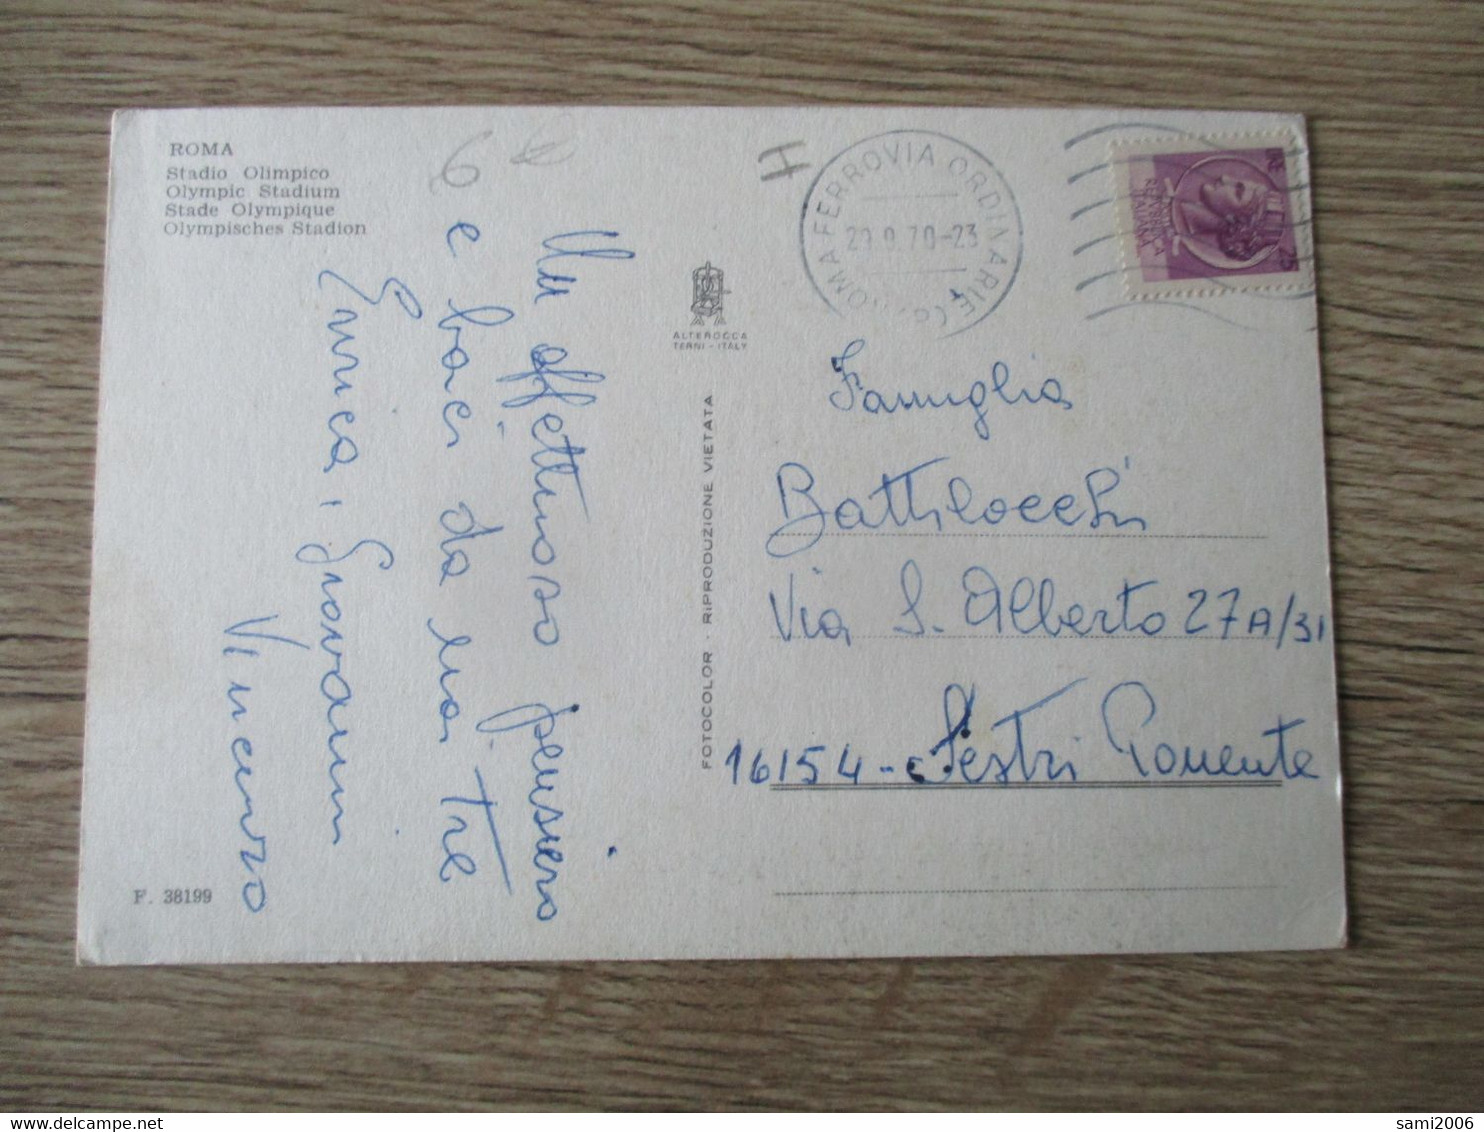 ROMA
Stadio Olimpico
Olympic Stadium
Stade Olympique
Olympisches Stadion
Un affettuoso pensiero
e baci da noi tre
Enrica, Giovanni
Vincenzo
F. 38199
ALTEROCCA
TERNI - ITALY
FOTOCOLOR · RIPRODUZIONE VIETATA
ROMA FERROVIA ORDINARIE
29.9.70-23
REPUBBLICA
ITALIANA
LIRE
25
Famiglia
Battilocchi
Via S. Alberto 27A/31
16154 - Sestri Ponente
sami2006